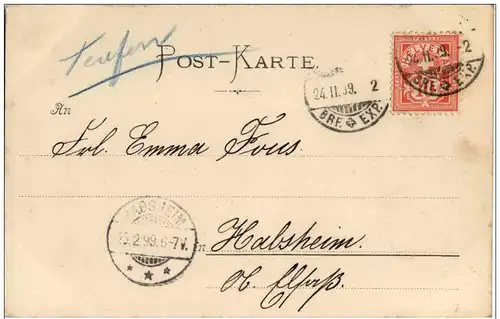 Teufen
POST-KARTE.
HELVETIA
24. II. 99. 2
BRF. EXP.
An
Frl. Emma Fous
HABSHEIM
25.2.99.6-7V.
in
Habsheim.
Ob. Elsaß.